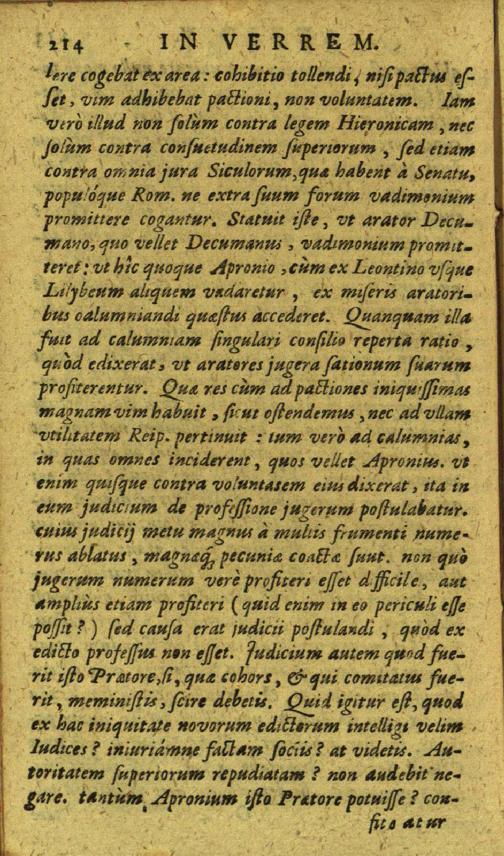 214 IN VERREM.
lere cogebat ex area: cohibitio tollendi, nisi pactus es-
set, vim adhibebat pactioni, non voluntatem. Iam
verò illud non solùm contra legem Hieronicam, nec
solùm contra consuetudinem superiorum, sed etiam
contra omnia jura Siculorum, quæ habent à Senatu,
populóque Rom. ne extra suum forum vadimonium
promittere cogantur. Statuit iste, vt arator Decu-
mano, quo vellet Decumanus, vadimonium promit-
teret: vt hîc quoque Apronio, cùm ex Leontino vsque
Lilybeum aliquem vadaretur, ex miseris aratori-
bus calumniandi quæstus accederet. Quanquam illa
fuit ad calumniam singulari consilio reperta ratio,
quòd edixerat, vt aratores jugera sationum suarum
profiterentur. Quæ res cùm ad pactiones iniquissimas
magnam vim habuit, sicut ostendemus, nec ad vllam
vtilitatem Reip. pertinuit: tum verò ad calumnias,
in quas omnes inciderent, quos vellet Apronius. vt
enim quisque contra voluntasem eius dixerat, ita in
eum judicium de professione jugerum postulabatur.
cuius judicij metu magnus à multis frumenti nume-
rus ablatus, magnæq́; pecuniæ coactæ suut. non quò
jugerum numerum verè profiteri esset difficile, aut
ampliùs etiam profiteri (quid enim in eo periculi esse
possit?) sed causa erat judicii postulandi, quòd ex
edicto professus non esset. Judicium autem quod fue-
rit isto Prætore, si, quæ cohors, & qui comitatus fue-
rit, meministis, scire debetis. Quid igitur est, quod
ex hac iniquitate novorum edictorum intelligi velim
Iudices? iniuriámne factam sociis? at videtis. Au-
toritatem superiorum repudiatam? non audebit ne-
gare. tantùm Apronium isto Prætore potuisse? con-
fiteatur